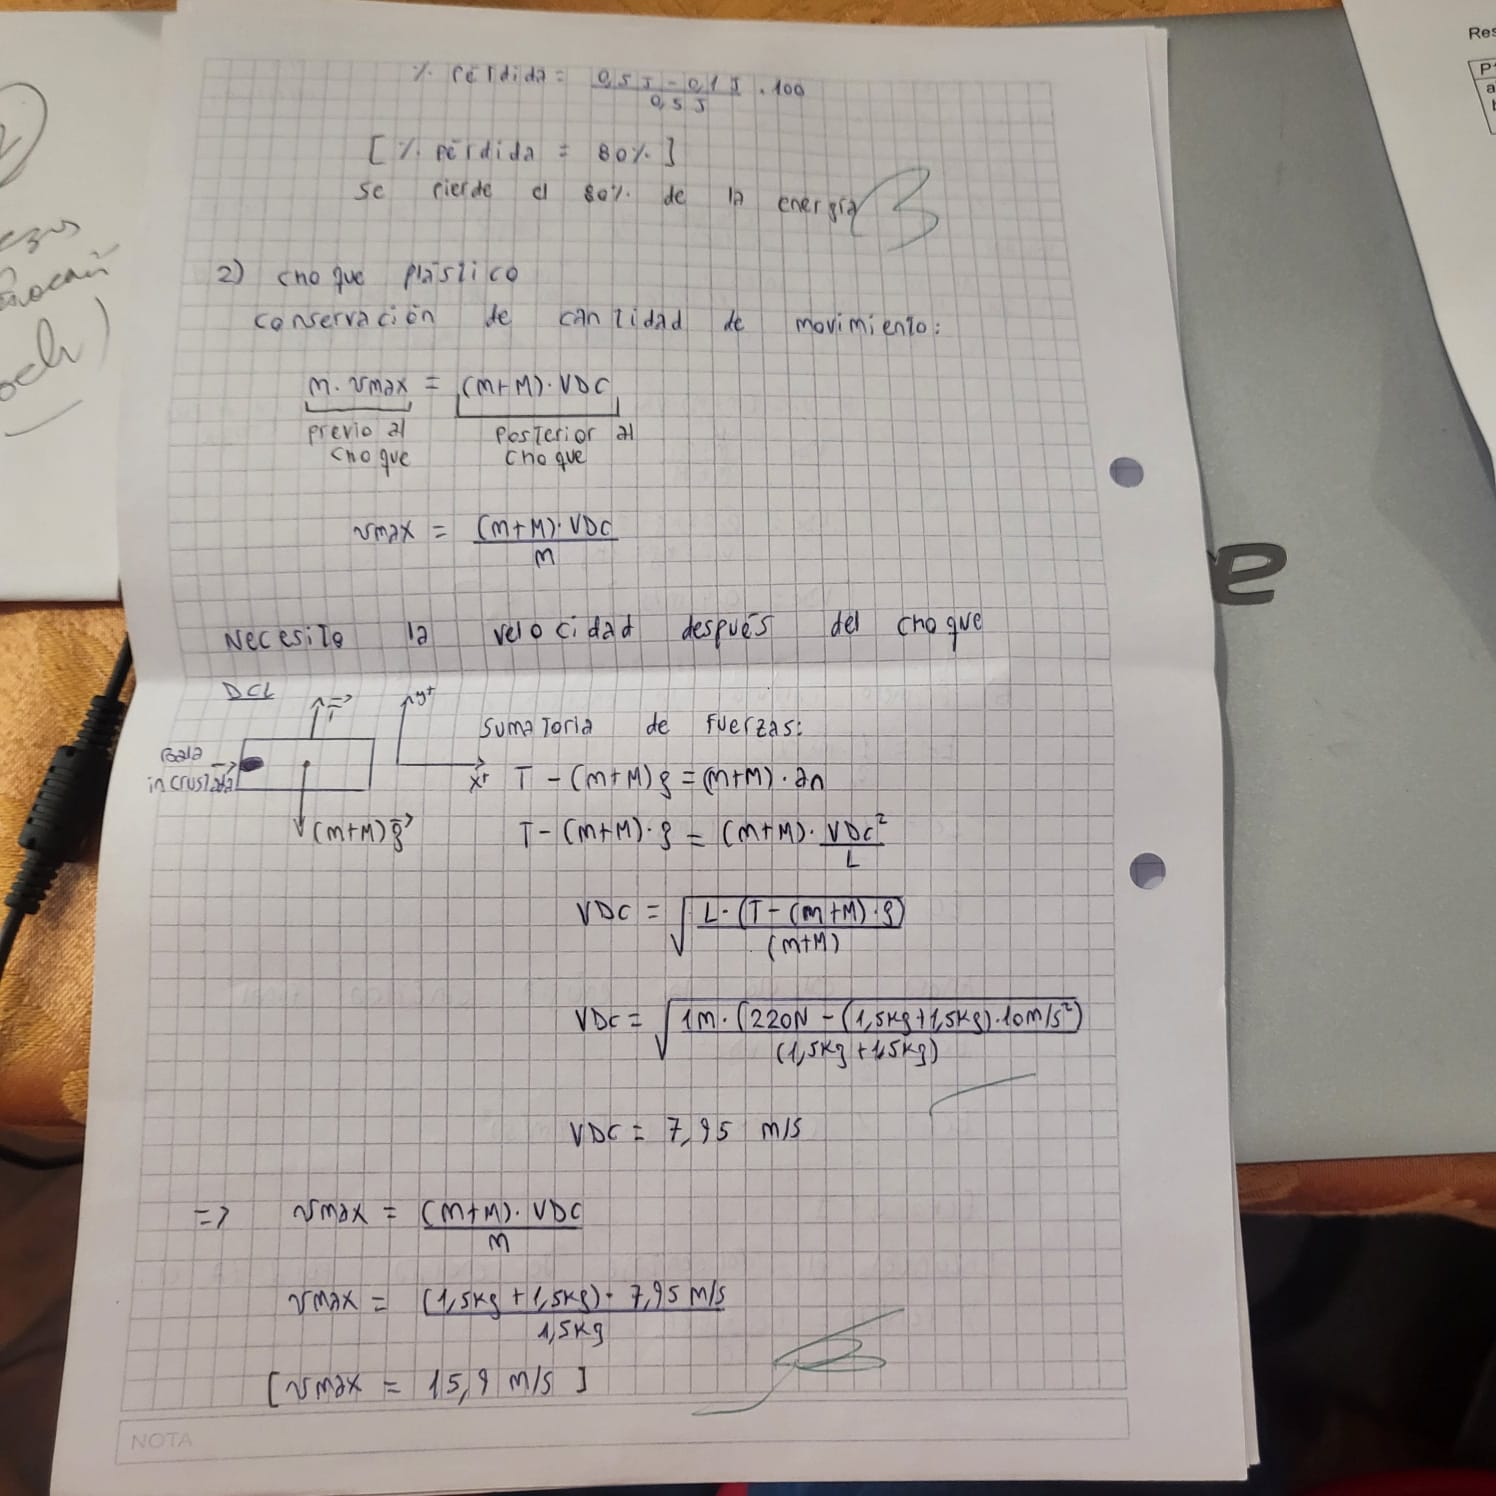 % Pérdida = 0,5 J - 0,1 J / 0,5 J . 100
[ % pérdida = 80% ]
se pierde el 80% de la energía
2) choque plástico
conservación de cantidad de movimiento:
m. vmax = (m+M). VDC
previo al choque
posterior al choque
vmax = (m+M). VDC / m
Necesito la velocidad después del choque
DCL
T
y+
x+
Bala incrustada
(m+M)g
sumatoria de fuerzas:
T - (m+M)g = (m+M). an
T - (m+M). g = (m+M). VDC² / L
VDC = √ L. (T - (m+M). g) / (m+M)
VDC = √ 1m. (220N - (1,5kg+1,5kg). 10m/s²) / (1,5kg + 1,5kg)
VDC = 7,95 m/s
=> vmax = (m+M). VDC / m
vmax = (1,5kg + 1,5kg). 7,95 m/s / 1,5kg
[ vmax = 15,9 m/s ]
NOTA
e
Res
P
a